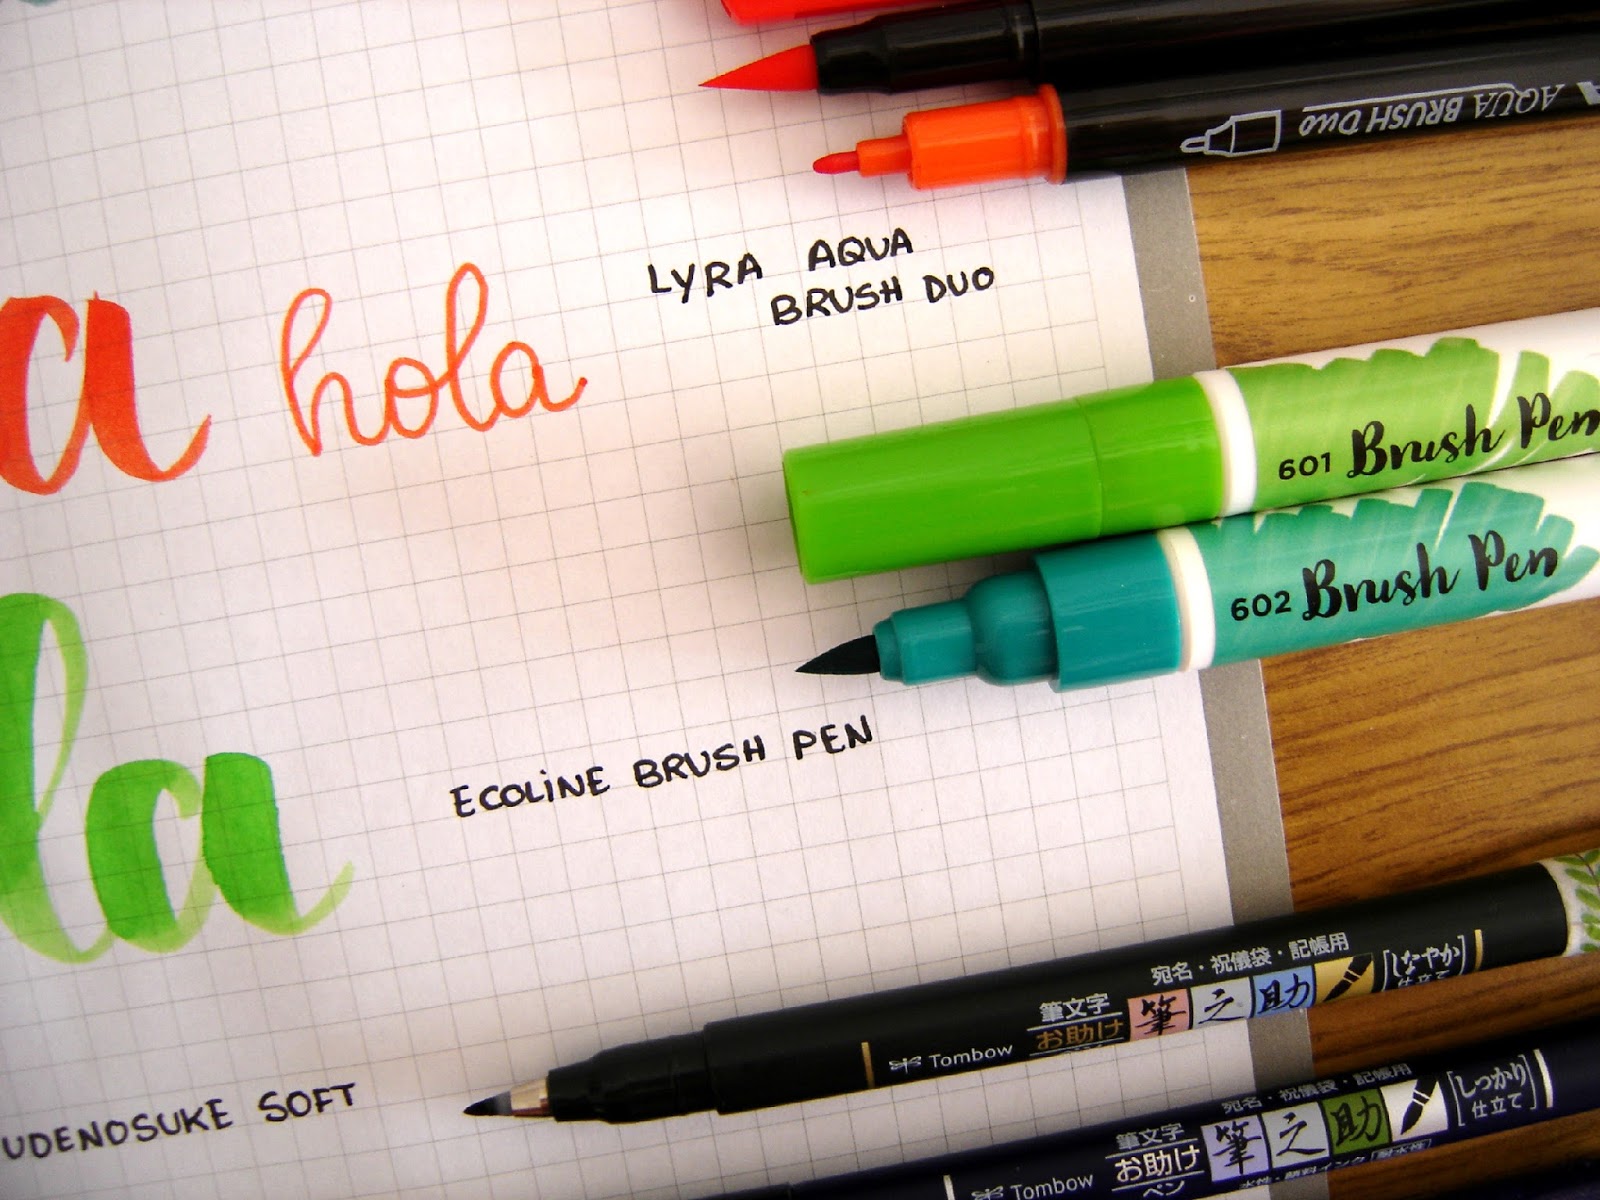 AQUA BRUSH DUO
LYRA AQUA
BRUSH DUO
a hola
601 Brush Pen
602 Brush Pen
ECOLINE BRUSH PEN
la
宛名・祝儀袋・記帳用
筆文字
お助け
筆之助
しなやか
仕立て
Tombow
UDENOSUKE SOFT
宛名・祝儀袋・記帳用
筆文字
お助け
ペン
筆之助
しっかり
仕立て
水性・顔料インク
Tombow